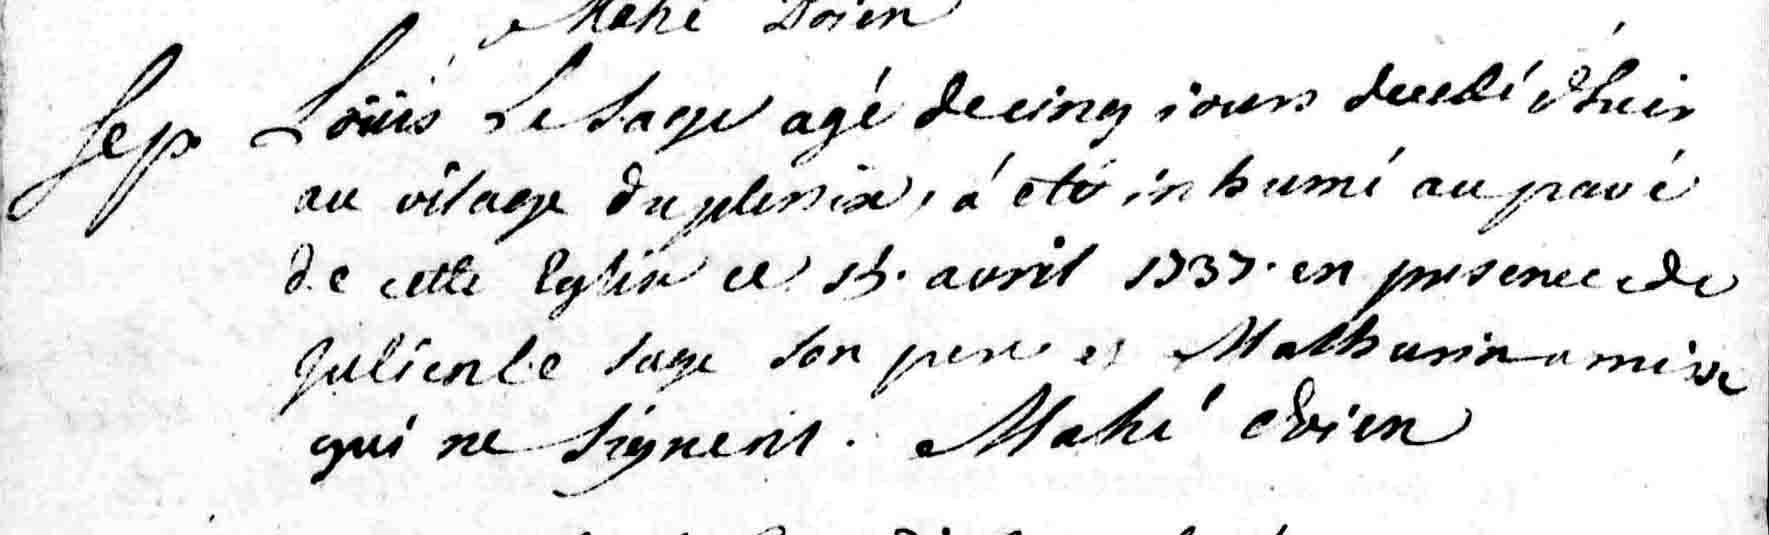 Mahé Doien
Sep Loüis Le Sage agé de cinq iours decedé d'hier
au vilage du plessix, á eté inhumé au pavé
de cette Eglise ce avril 1737. en presence de
Julien le sage son pere et Mathurin
qui ne signent. Mahé doien